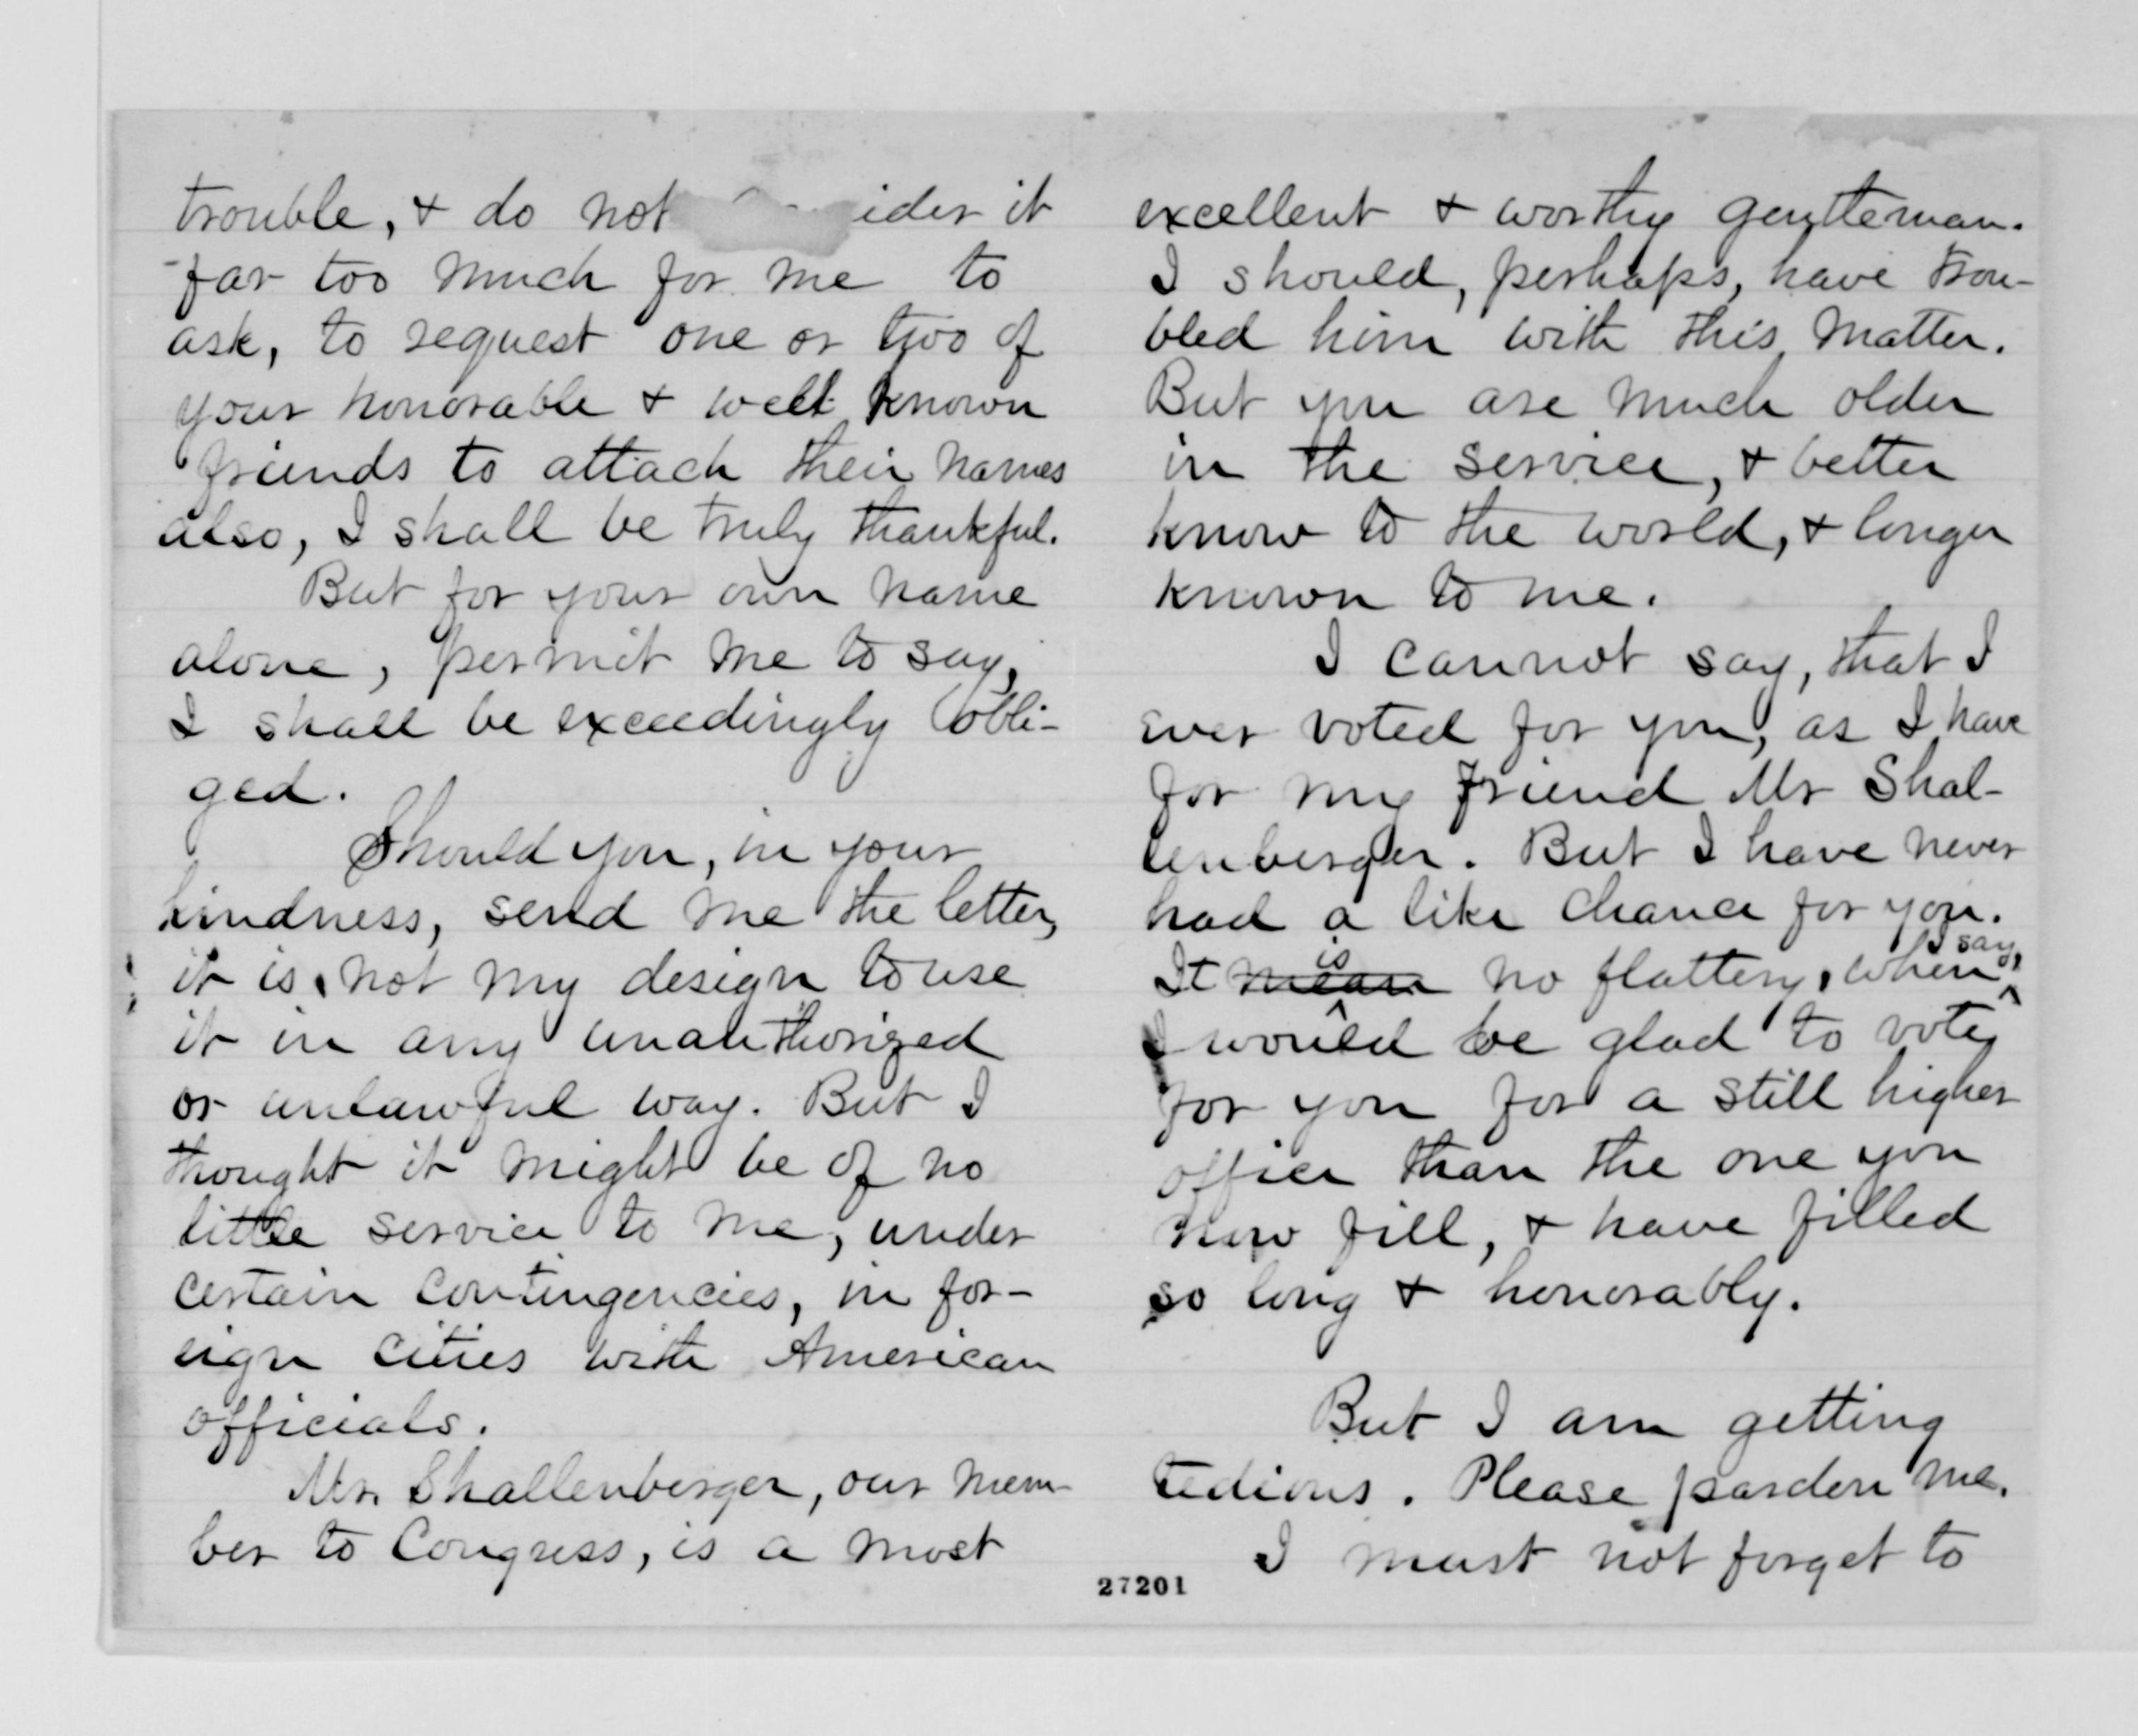 trouble, & do not ider it
far too much for me to
ask, to request one or two of
your honorable & well known
friends to attach their names
also, I shall be truly thankful.
But for your own name
alone, permit me to say,
I shall be exceedingly obli-
ged.
Should you, in your
kindness, send me the letter,
it is not my design to use
it in any unauthorized
or unlawful way. But I
thought it might be of no
little service to me, under
certain contingencies, in for-
eign cities with American
officials.
Mr. Shallenberger, our mem-
ber to Congress, is a most
27201
excellent & worthy gentleman.
I should, perhaps, have trou-
bled him with this matter.
But you are much older
in the service, & better
know to the world, & longer
known to me.
I cannot say, that I
ever voted for you, as I have
for my friend Mr Shal-
lenberger. But I have never
had a like chance for you.
It mean is no flattery, when I say,
I would be glad to vote
for you for a still higher
office than the one you
now fill, & have filled
so long & honorably.
But I am getting
tedious. Please pardon me.
I must not forget to